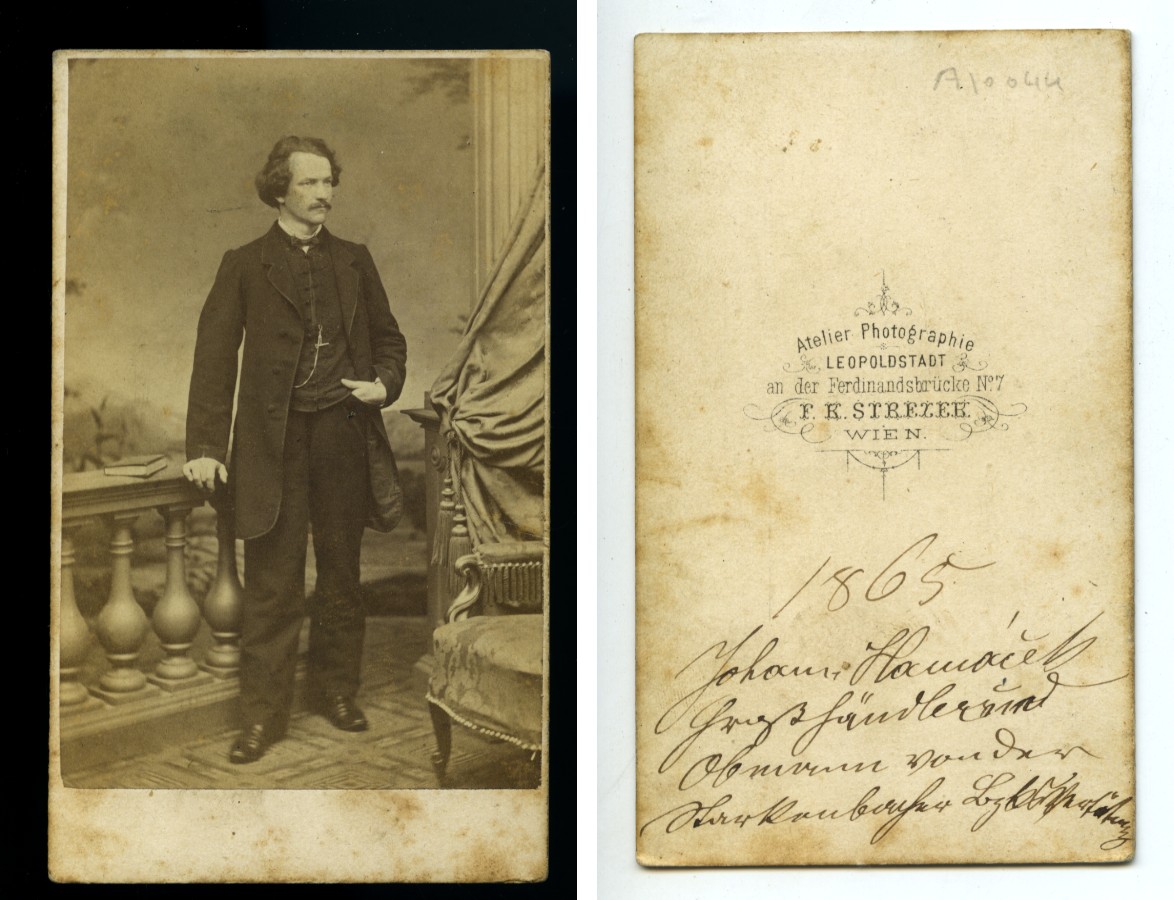 A10044
Atelier Photographie
LEOPOLDSTADT
an der Ferdinandsbrücke No 7
F. K. STREZEK.
WIEN.
1865
Johann
Großhändler und
Obmann von der
Starkenbacher